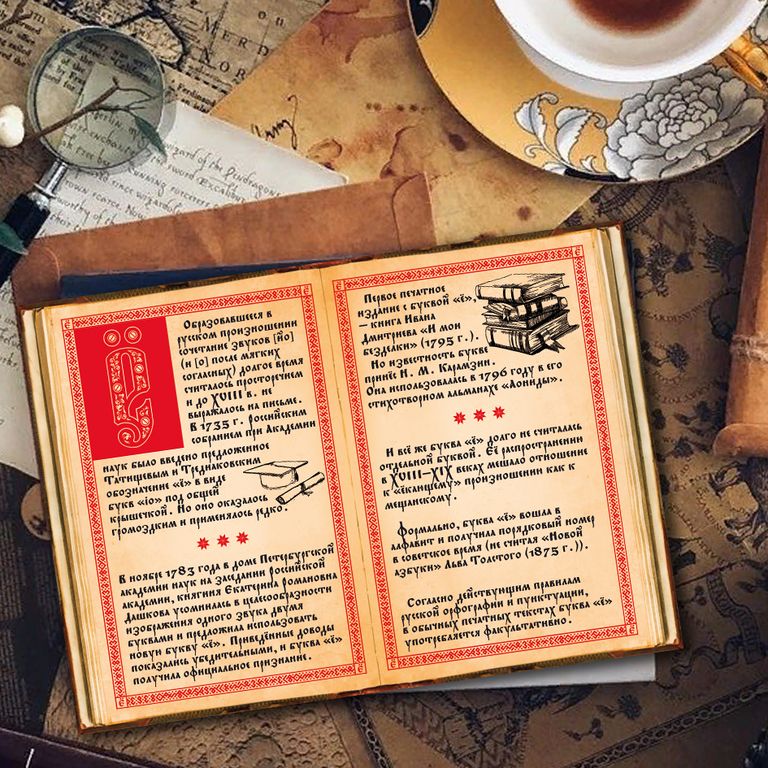 Образовавшееся в
русском произношении
сочетание звуков [йо]
(и [о] после мягких
согласных) долгое время
считалось просторечием
и до XVIII в. не
выражалось на письме.
В 1735 г. российским
собранием при Академии
наук было введено предложенное
Татищевым и Тредиаковским
обозначение «ё» в виде
букв «io» под общей
крышечкой. Но оно оказалось
громоздким и применялось редко.
В ноябре 1783 года в доме Петербургской
академии наук на заседании российской
академии, княгиня Екатерина Романовна
Дашкова усомнилась в целесообразности
изображения одного звука двумя
буквами и предложила использовать
новую букву «ё». Приведённые доводы
показались убедительными, и буква «ё»
получила официальное признание.
Первое печатное
издание с буквой «ё»,
– книга Ивана
Дмитриева «И мои
безделки» (1795 г.).
Но известность букве
принёс Н. М. Карамзин.
Она использовалась в 1796 году в его
стихотворном альманахе «Аониды».
И всё же буква «ё» долго не считалась
отдельной буквой. Её распространению
в XVIII–XIX веках мешало отношение
к «ёкающему» произношению как к
мещанскому.
Формально, буква «ё» вошла в
алфавит и получила порядковый номер
в советское время (не считая «Новой
азбуки» Льва Толстого (1875 г.)).
Согласно действующим правилам
русской орфографии и пунктуации,
в обычных печатных текстах буква «ё»
употребляется факультативно.